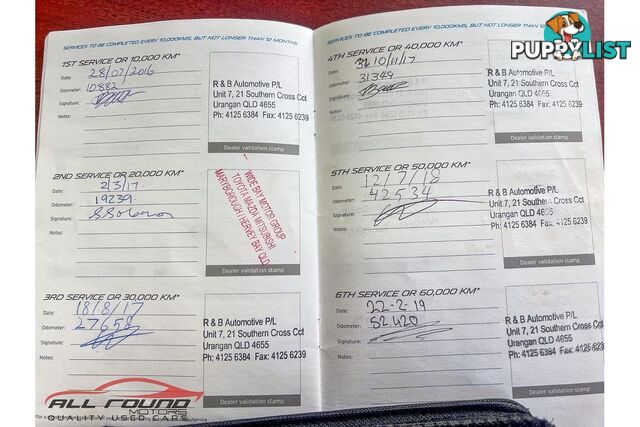 SERVICES TO BE COMPLETED EVERY 10,000KMS, BUT NOT LONGER THAN 12 MONTHS
1ST SERVICE OR 10,000 KM*
Date: 28/07/2016
Odometer: 10882
Signature:
Notes:
R & B Automotive P/L
Unit 7, 21 Southern Cross Cct
Urangan QLD 4655
Ph: 4125 6384 Fax: 4125 6239
Dealer validation stamp
2ND SERVICE OR 20,000 KM*
Date: 2/3/17.
Odometer: 19239
Signature: S Solomon
Notes:
WIDE BAY MOTOR GROUP
TOYOTA MAZDA MITSUBISHI
MARYBOROUGH HERVEY BAY QLD
Dealer validation stamp
3RD SERVICE OR 30,000 KM*
Date: 18/8/17
Odometer: 27658
Signature:
Notes:
R & B Automotive P/L
Unit 7, 21 Southern Cross Cct
Urangan QLD 4655
Ph: 4125 6384 Fax: 4125 6239
ALL ROUND
MOTORS
QUALITY USED CARS
SERVICES TO BE COMPLETED EVERY 10,000KMS, BUT NOT LONGER THAN 12
4TH SERVICE OR 40,000 KM*
Date: 10/11/17
Odometer: 31349
Signature:
Notes:
R & B Automotive P/L
Unit 7, 21 Southern Cross Cct
Urangan QLD 4655
Ph: 4125 6384 Fax: 4125 6239
Dealer validation stamp
5TH SERVICE OR 50,000 KM*
Date: 12/7/18
Odometer: 42534
Signature:
Notes:
R & B Automotive P/L
Unit 7, 21 Southern Cross Cct
Urangan QLD 4655
Ph: 4125 6384 Fax: 4125 6239
Dealer validation stamp
6TH SERVICE OR 60,000 KM*
Date: 22-2-19
Odometer: 52420
Signature:
Notes:
R & B Automotive P/L
Unit 7, 21 Southern Cross Cct
Urangan QLD 4655
Ph: 4125 6384 Fax: 4125 6239
Dealer validation stamp
PUPPYLIST